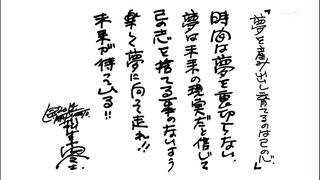 「夢を産み出し育てるのは己の心」
時間は夢を裏切らない、
夢は未来の現実だと信じて
己の志を捨てる事のないよう
楽しく夢に向って走れ!!
未来が待っている!!